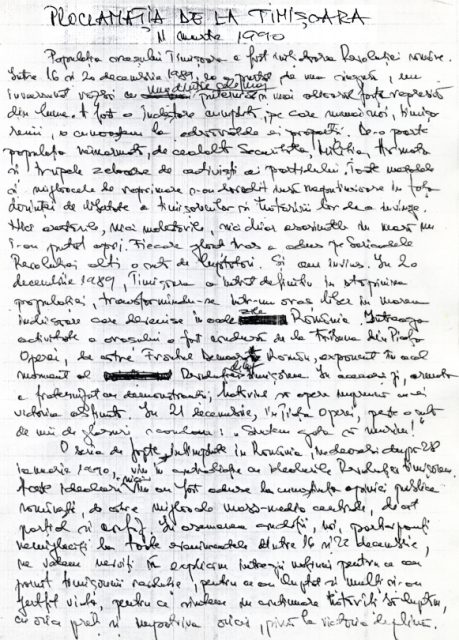 PROCLAMAȚIA DE LA TIMIȘOARA
11 martie 1990
Populația orașului Timișoara a fost inițiatoarea Revoluției române.
Între 16 și 20 decembrie 1989, ea a purtat de una singură, un
înverșunat război cu una dintre cele mai puternice și mai odioase forțe represive
din lume. A fost o încleștare cumplită, pe care numai noi, timișo-
renii, o cunoaștem la adevăratele ei proporții. De-o parte
populația neînarmată, de cealaltă Securitatea, Miliția, Armata
și trupele zeloase de activiști ai partidului. Toate metodele
și mijloacele de reprimare s-au dovedit însă neputincioase în fața
dorinței de libertate a timișorenilor și hotărîrii lor de a învinge.
Nici arestările, nici molestările, nici chiar asasinatele în masă nu
i-au putut opri. Fiecare glonț tras a adus pe baricadele
Revoluției alți o sută de luptători. Și am învins. În 20
decembrie 1989, Timișoara a intrat definitiv în stăpînirea
populației, transformîndu-se într-un oraș liber în marea
închisoare care devenise în acele zile România. Întreaga
activitate a orașului a fost condusă de la tribuna din Piața
Operei, de către Frontul Democrat Român, exponent în acel
moment al Revoluției Timișoara. În aceeași zi, armata
a fraternizat cu demonstranții, hotărînd să apere împreună cu ei
victoria obținută. În 21 decembrie, în Piața Operei, peste o sută
de mii de glasuri scandau: „Suntem gata să murim!"
O serie de fapte întîmplate în România, îndeosebi după 28
ianuarie 1990, vin în contradicție cu idealurile Revoluției Timișoara.
Aceste idealuri nici n-au fost aduse la cunoștința opiniei publice
românești, de către mijloacele mass-media centrale, decît
parțial și confuz. În asemenea condiții, noi, participanți
nemijlociți la toate evenimentele dintre 16 și 22 decembrie,
ne vedem nevoiți să explicăm întregii națiuni pentru ce au
pornit timișorenii revoluția, pentru ce au luptat și mulți și-au
jertfit viața, pentru ce sîntem în continuare hotărîți să luptăm,
cu orice preț și împotriva oricui, pînă la victoria deplină.